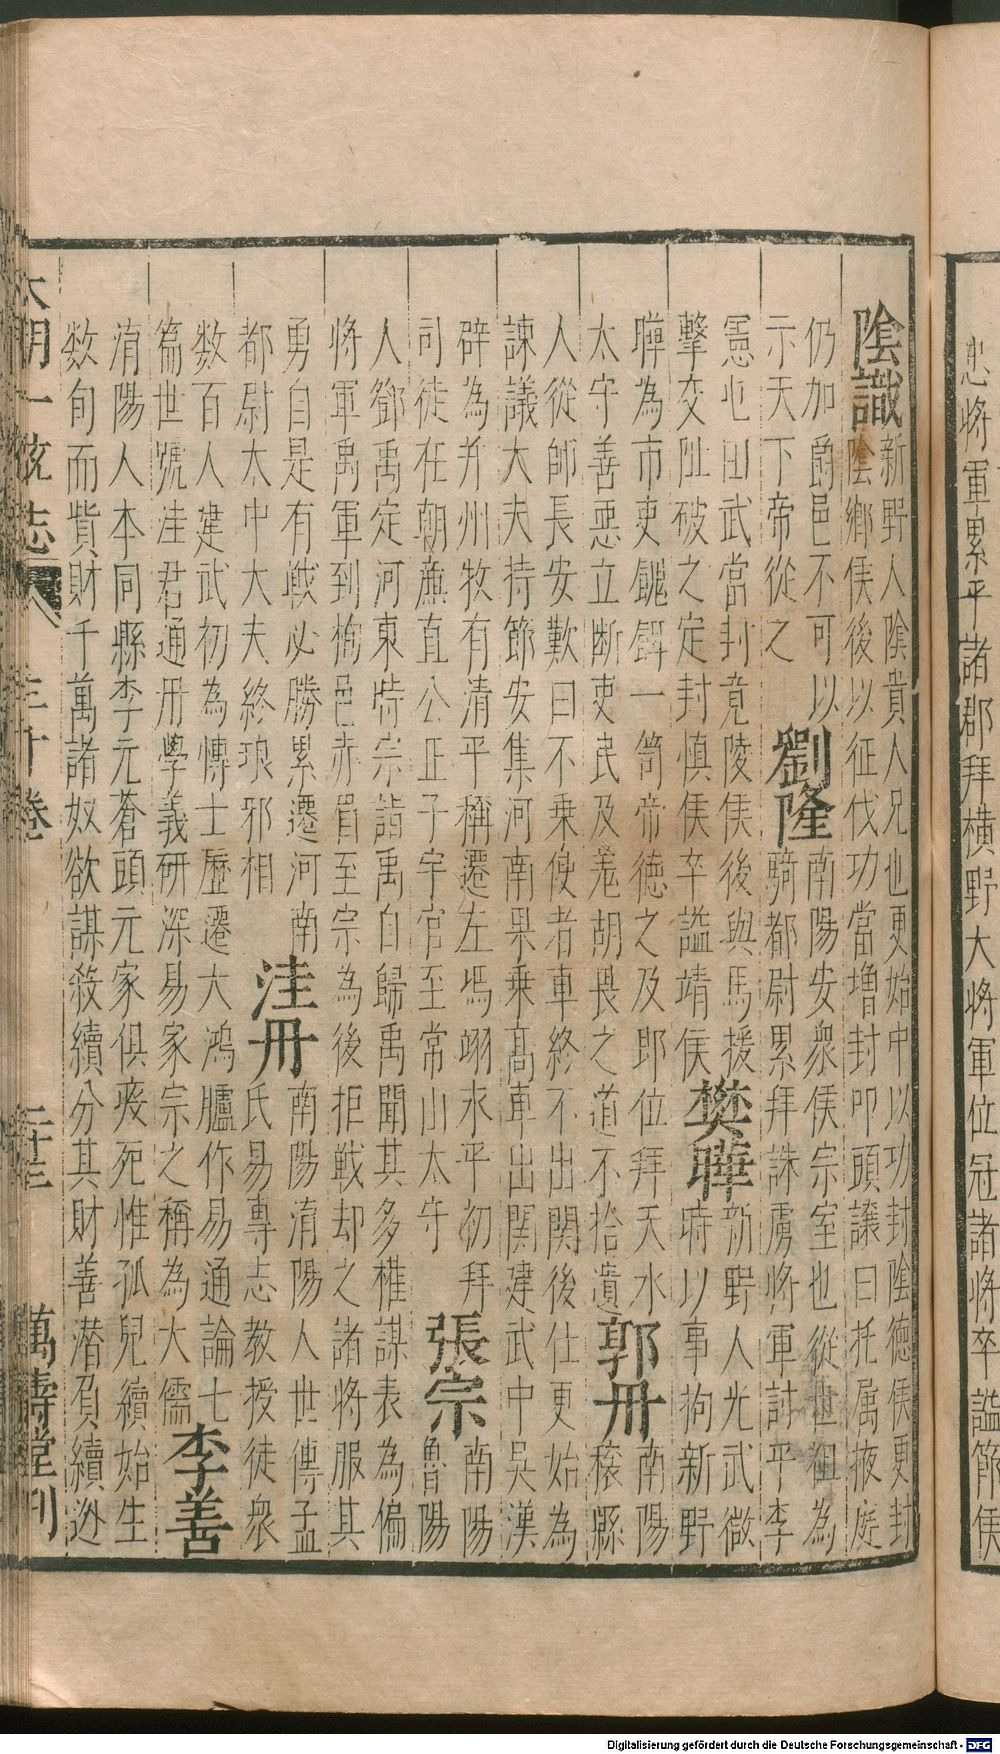 忠將軍累平諸郡拜橫野大將軍位冠諸將卒諡節侯
陰識 新野人陰貴人兄也更始中以功封陰德侯更封
陰鄉侯後以征伐功當增封叩頭讓曰托属掖庭
仍加爵邑不可以
示天下帝從之
劉隆 南陽安衆侯宗室也從世祖為
騎都尉累拜誅虜將軍討平李
憲屯田武當封竟陵侯後與馬援
擊交趾破之定封慎侯卒諡靖侯
樊曄 新野人光武微
時以事拘新野
曄為市吏餽餌一笥帝德之及即位拜天水
太守善惡立断吏民及羌胡畏之道不拾遺
郭丹 南陽
穰縣
人從師長安歎曰不乗使者車終不出関後仕更始為
諫議大夫持節安集河南果乗高車出関建武中吳漢
辟為并州牧有清平稱遷左馮翊永平初拜
司徒在朝廉直公正子宇官至常山太守
張宗 南陽
魯陽
人鄧禹定河東時宗詣禹自歸禹聞其多權謀表為偏
將軍禹軍到栒邑赤眉至宗為後拒戦却之諸將服其
勇自是有戦必勝累遷河南
都尉太中大夫終琅邪相
洼丹 南陽淯陽人世傳孟
氏易專志教授徒衆
数百人建武初為愽士歴遷大鴻臚作易通論七
篇世號洼君通丹學義研深易家宗之稱為大儒
李善
淯陽人本同縣李元蒼頭元家俱疫死惟孤兒續始生
数旬而貲財千萬諸奴欲謀殺續分其財善潜負續逃
大明一統志 三十卷 萬壽堂刊
Digitalisierung gefördert durch die Deutsche Forschungsgemeinschaft - DFG